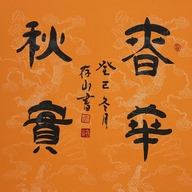 春華
秋實
癸巳冬月
存山書